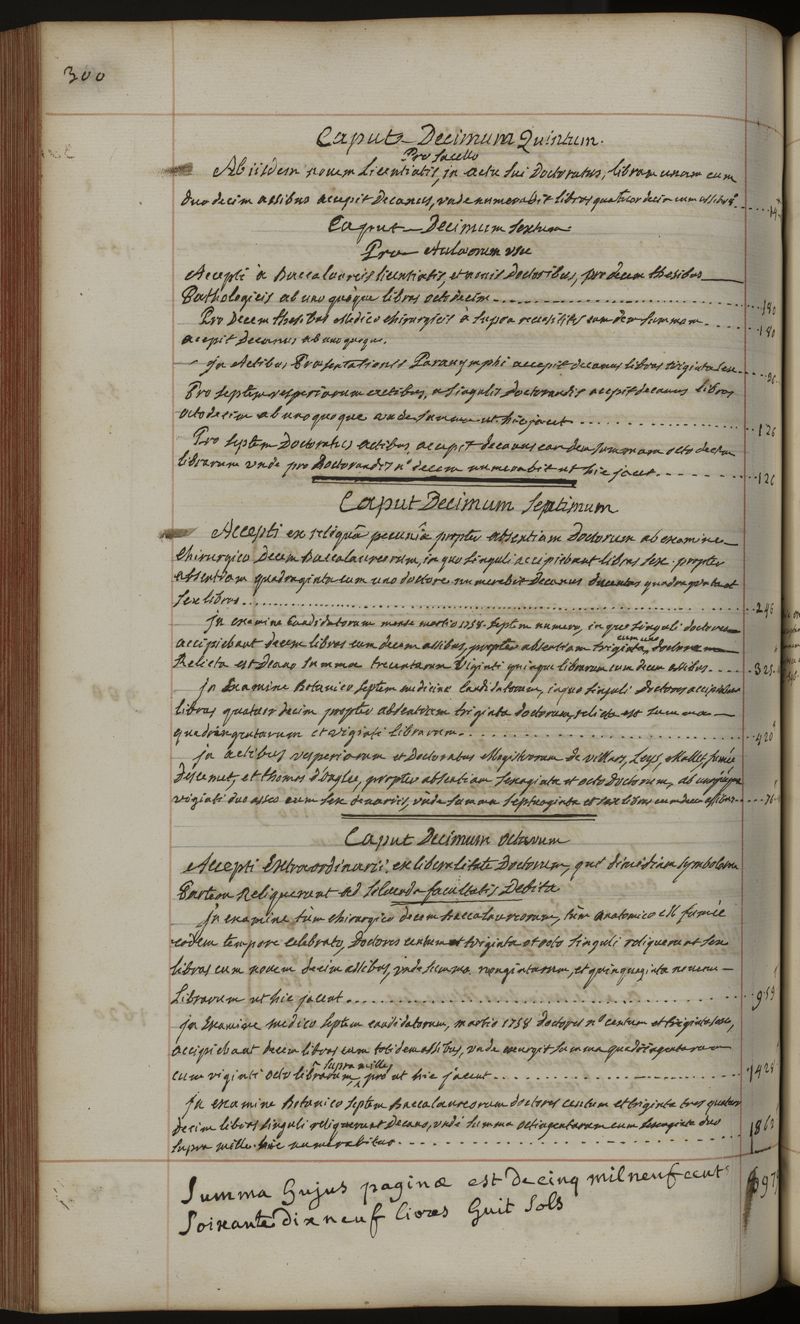 300
Caput Decimum Quintum.
Pro Sacello
Ab iisdem novem Licentiatis, in actu sui Doctoratus, libram unam cum
duodecim assibus accepit Decanus, unde numerabit libras quatuordecim cum assibus 8.
Caput Decimum Sextum
Pro Aulaeorum usu
Accepti à Baccalaureis licentiatis, et novis Doctoribus, pro decem thesibus
Pathologicis ab uno quoque libras octodecim 180
Pro Decem thesibus Medico chirurgicis à supra recensitis eamdem summam 180
accepit Decanus ab uno quoque.
in Actibus Praesentationis Paranymphi accepit decanus libras triginta sex 36
Pro septem vesperiarum actibus, a singulis doctorandis accepit decanus libras
octodecim ab uno quoque unde summa ut hic jacet 126
Pro septem Doctoratus actibus, accepit decanus eamdem summam octodecim
librarum unde pro Doctorandis n° decem numerabit ut hic jacet 126
Caput Decimum Septimum
Accepti ex reliquâ pecuniâ propter absentiam Doctorum ab examine
Chirurgico Decem Baccalaureorum, in quo singuli accipiebant libras sex propter
absentiam quadraginta cum uno doctore numerabit Decanus ducentas quadraginta et
sex libras 246
in examine Candidatorum mense martio 1758 septem numero, in quo singuli doctores
accipiebant decem libras cum decem assibus, propter absentiam triginta cum uno doctorum
Relicta est Decano summa trecentarum viginti quinque librarum cum decem assibus 325
in Examine Botanico septem medicinae Candidatorum, in quo singuli Doctores accipiebant
libras quatuordecim propter absentiam triginta doctorum, relicta est summa
quadringentarum et viginti librarum 420
in actibus vesperiarum et Doctoratus Magistrorum de villars, Leys, Mallet, fumée
Descemet, et thomas d'onglée, propter absentiam sexaginta et octo Doctorum, ab unoquoque
viginti duo asses cum sex denariis, unde summa septuaginta et sex libras cum decem assibus 76
Caput Decimum octavum
Accepti Extraordinarii ex liberalitate Doctorum, qui dimidiam symbolorum
Partem Reliquerunt ad solvenda facultatis Debita
in examine tùm chirurgico decem Baccalaureorum, tùm anatomico M. fumée
eodem tempore celebrato, Doctores centum et triginta et octo singuli reliquerunt sex
libras cum novem decim assibus, unde summa nongintarum, et quinquaginta novem
Librarum ut hic jacent 959
in Examine medico septem candidatorum, martio 1758 doctores n° centum et triginta sex,
accipiebant decem libras cum totidem assibus, unde emergit summa quadringentarum
cum viginti octo librarum supra mille, pro ut hic jacent 1428
in examine Botanico septem Baccalaureorum doctores centum et triginta tres quatuor
decim libras singuli reliquerunt Decano, unde summa octingentarum cum sexaginta duo
supra mille hic numerabitur 1862
Summa hujus paginae est de cinq mil neuf cent
Soixante dix neuf livres huit sols 5979